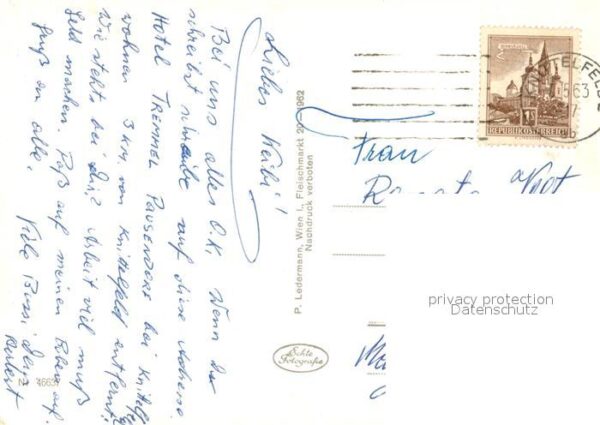 Liebes Weibi!!
Bei uns alles O.K. Wenn du
schreibst schreibe auf diese Adresse
Hotel TREMMEL PAUSENDORF bei Knittelf.
wohnen 3 KM. von Knittelfeld entfernt!
Wie steht's bei dir? Arbeit viel muß
Geld machen. Paß auf meinen Buben auf.
Gruß an alle. Viele Bussi dein
Robert
Nr. 4663
P. Ledermann, Wien I., Fleischmarkt 20 — 1962
Nachdruck verboten
Echte
Fotografie
KNITTELFELD
REPUBLIK ÖSTERREICH
Frau
privacy protection
Datenschutz